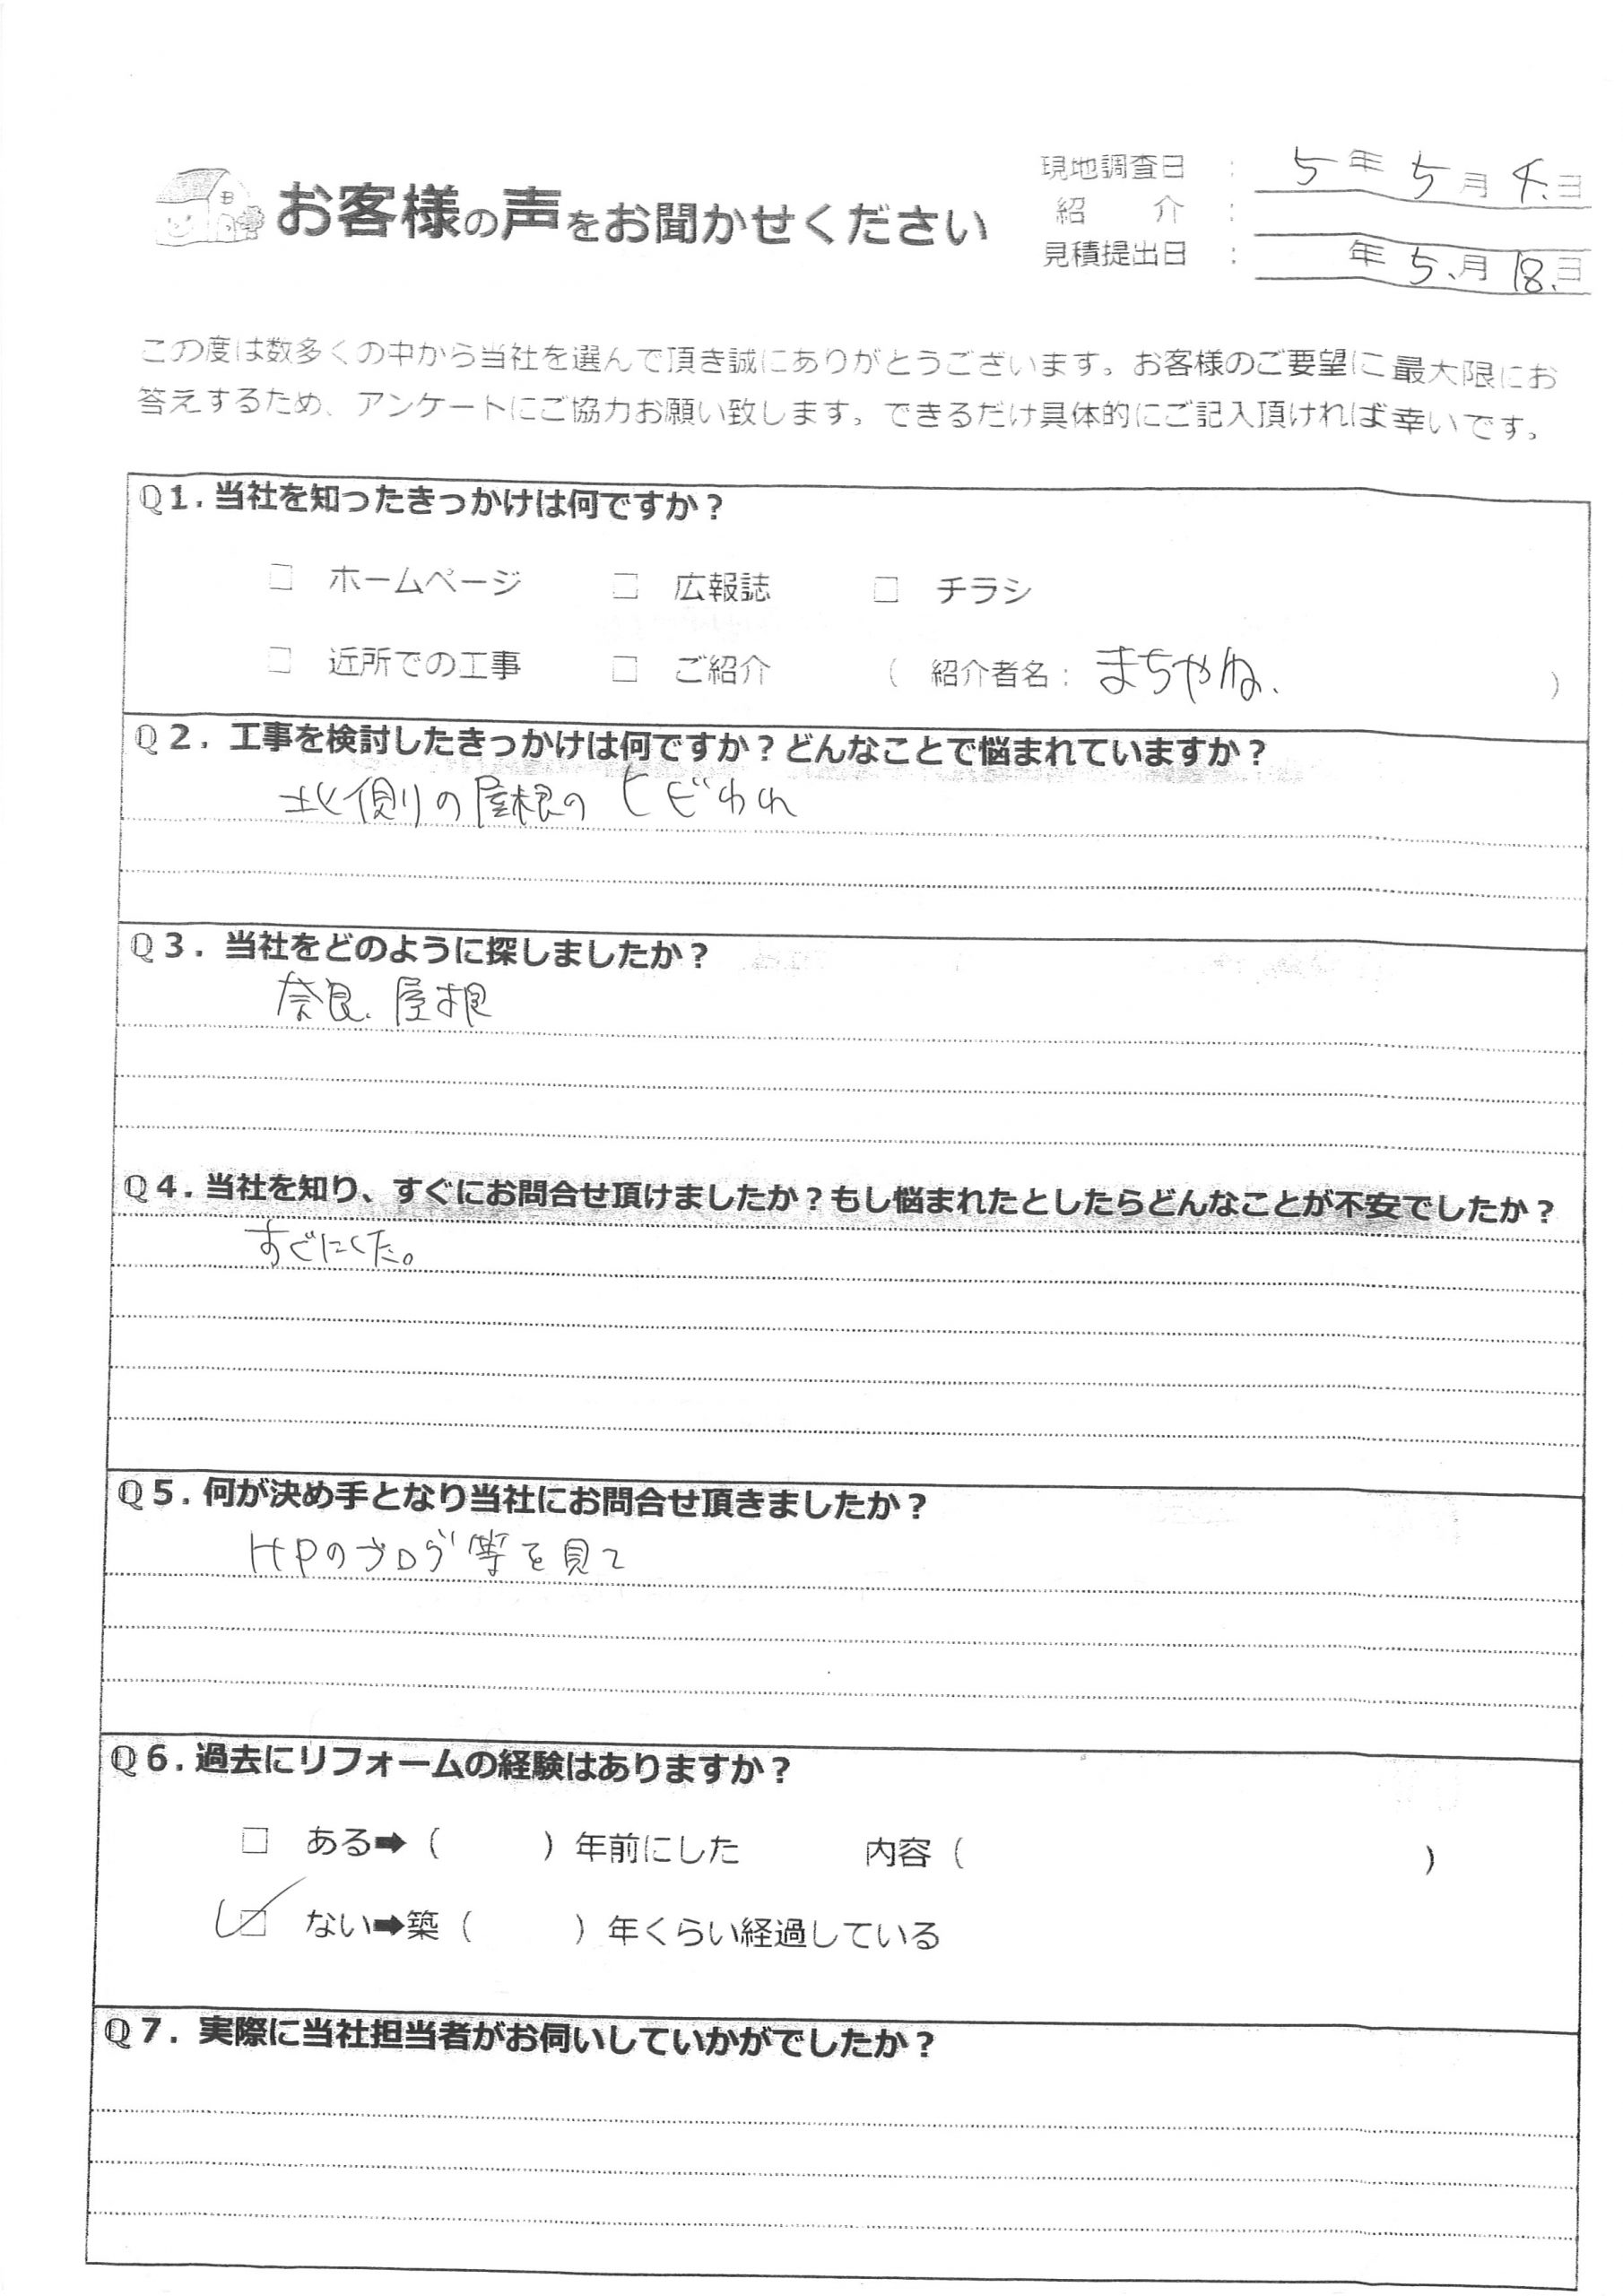 お客様の声をお聞かせください
現地調査日 : 5年5月4.日
紹 介 :
見積提出日 : 年5.月18.日
この度は数多くの中から当社を選んで頂き誠にありがとうございます。お客様のご要望に最大限にお
答えするため、アンケートにご協力お願い致します。できるだけ具体的にご記入頂ければ幸いです。
Q1.当社を知ったきっかけは何ですか？
□ ホームページ □ 広報誌 □ チラシ
□ 近所での工事 □ ご紹介 ( 紹介者名: まちやね. )
Q2.工事を検討したきっかけは何ですか？どんなことで悩まれていますか？
北側の屋根のヒビわれ
Q3.当社をどのように探しましたか？
奈良.屋根
Q4.当社を知り、すぐにお問合せ頂けましたか？もし悩まれたとしたらどんなことが不安でしたか？
すぐにした。
Q5.何が決め手となり当社にお問合せ頂きましたか？
HPのブログ等を見て
Q6.過去にリフォームの経験はありますか？
□ ある➡( )年前にした 内容( )
☑ ない➡築( )年くらい経過している
Q7.実際に当社担当者がお伺いしていかがでしたか？